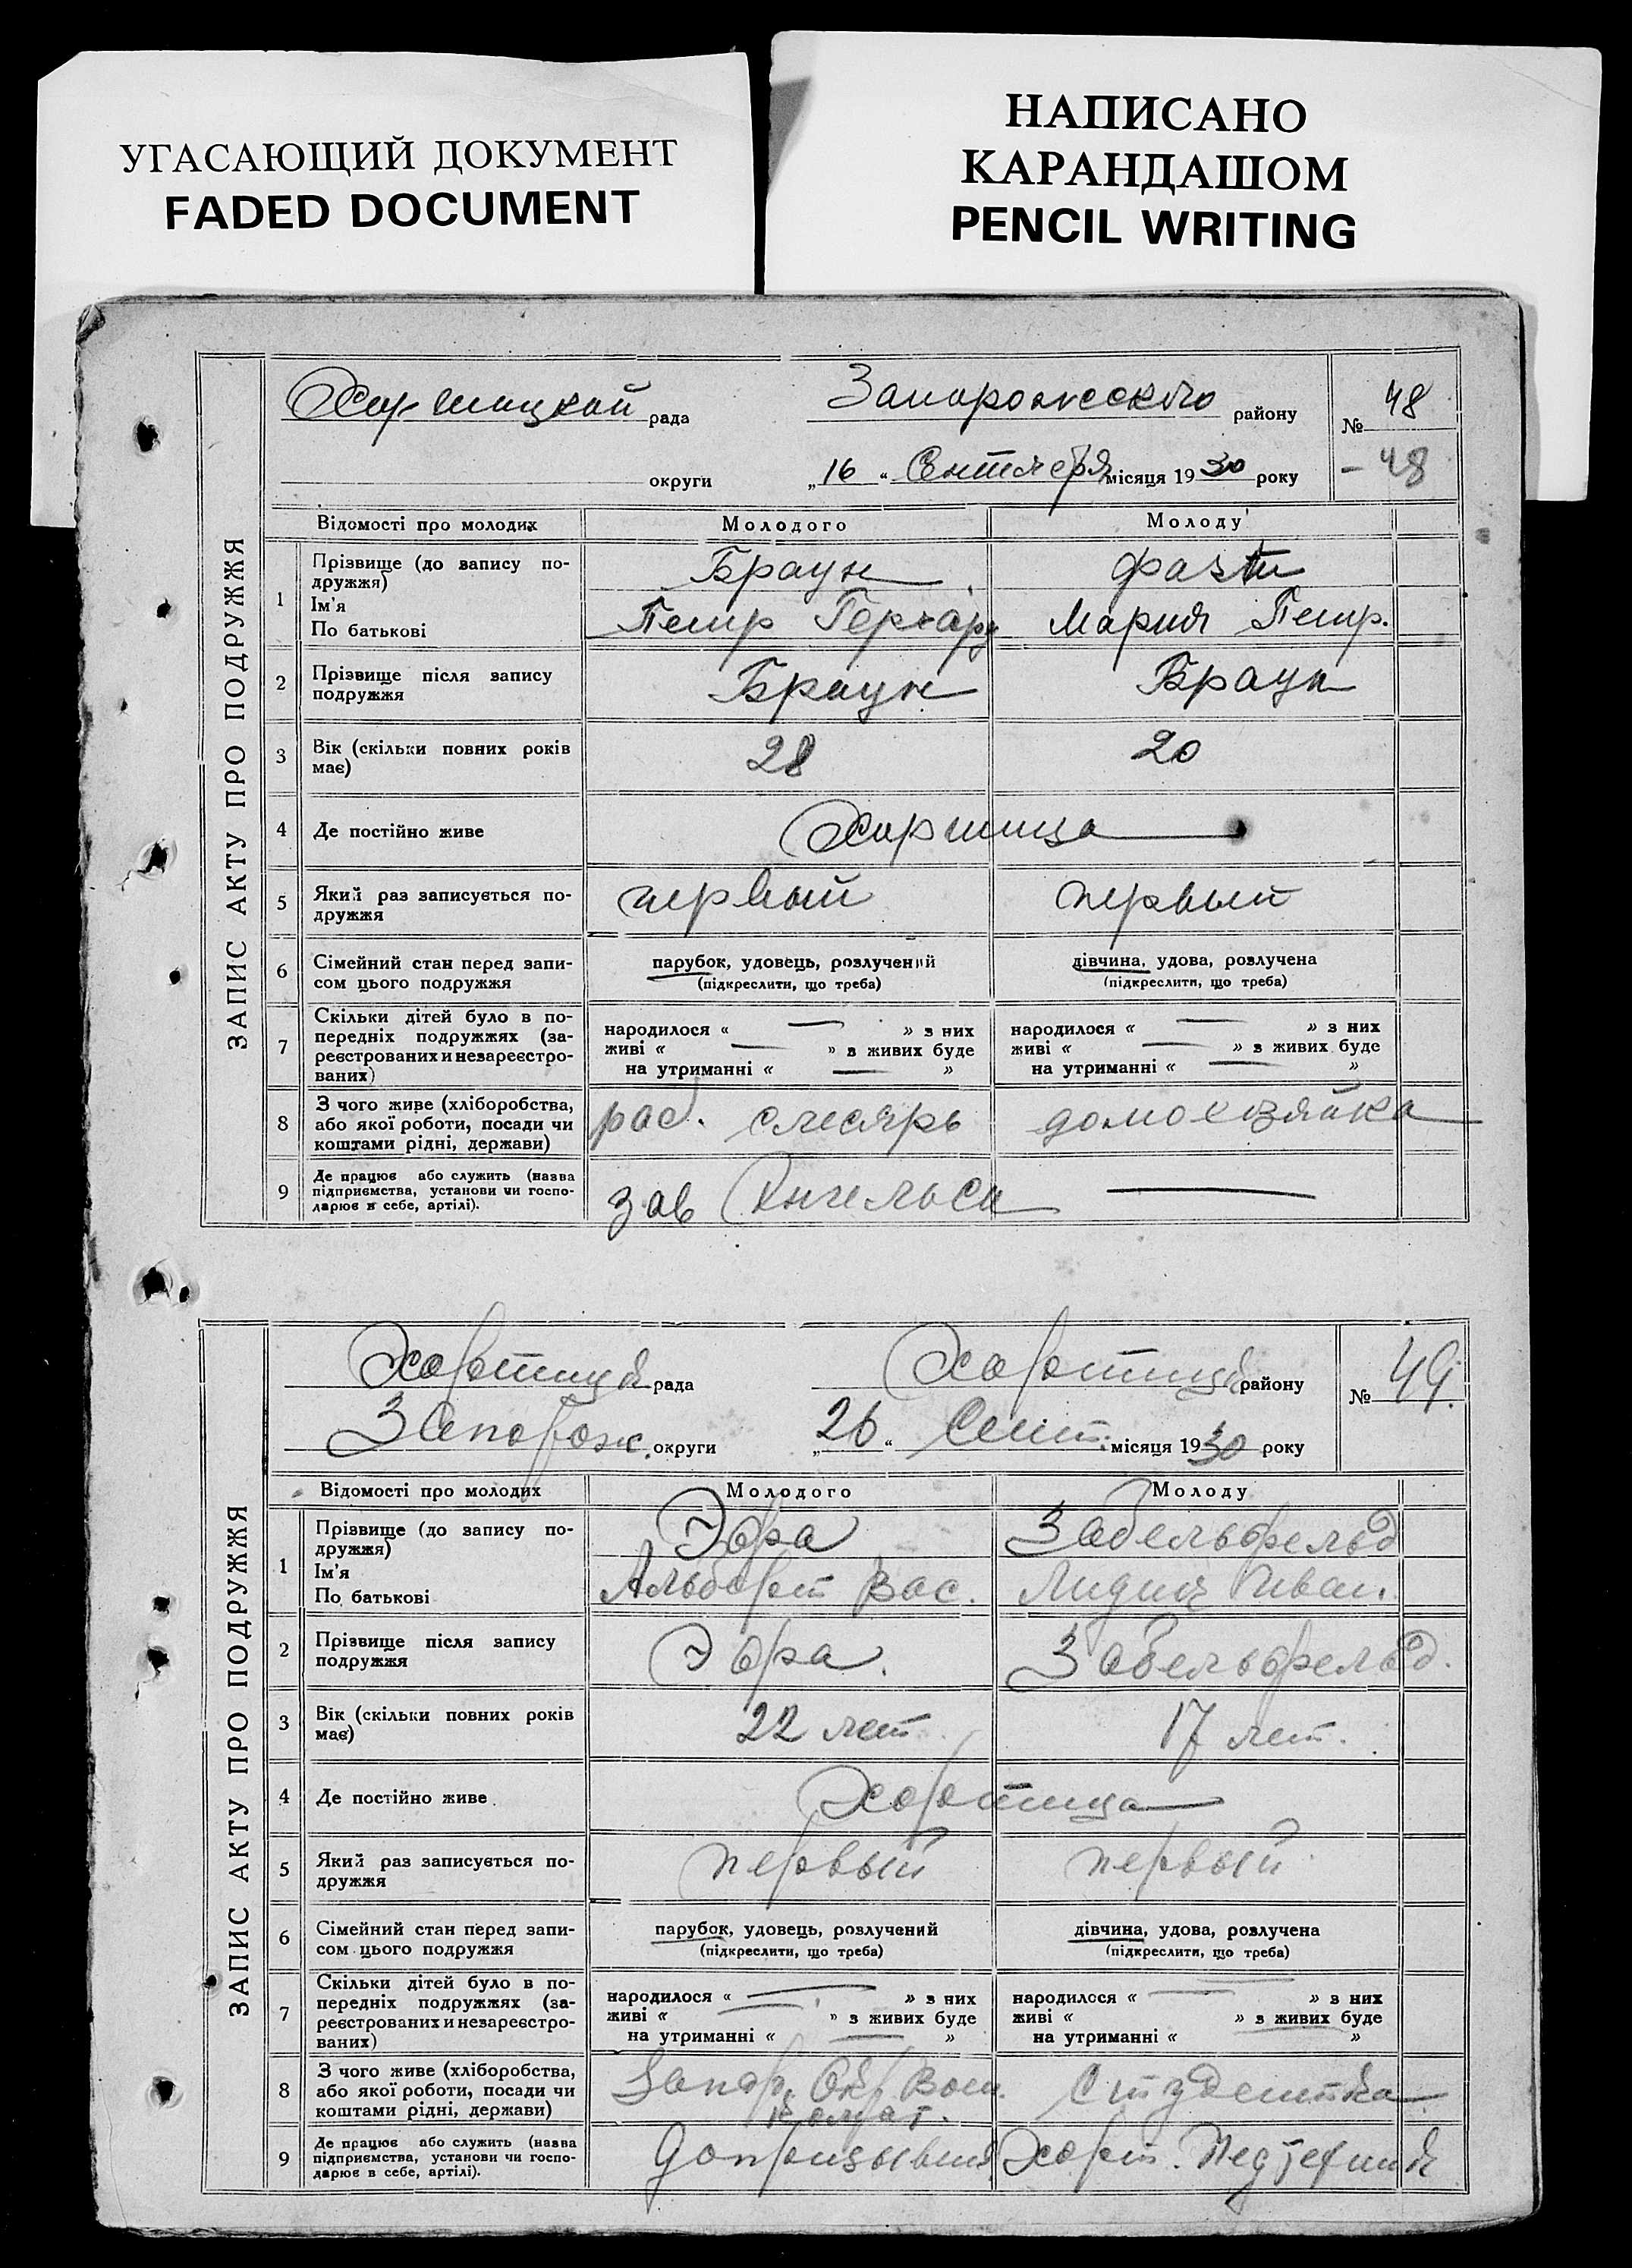 УГАСАЮЩИЙ ДОКУМЕНТ
FADED DOCUMENT
НАПИСАНО
КАРАНДАШОМ
PENCIL WRITING
ЗАПИС АКТУ ПРО ПОДРУЖЖЯ
Хортицкой рада Запорожского району № 48
округи „16“ Сентября місяця 1930 року – 48
Відомості про молодих Молодого Молоду
1 Прізвище (до запису подружжя) Браун
Ім'я
По батькові Петр Герхард Мария Петр.
2 Прізвище після запису Браун Браун
подружжя
3 Вік (скільки повних років 28 20
має)
4 Де постійно живе Хортица
5 Який раз записується по- первый первый
дружжя
6 Сімейний стан перед запи- парубок, удовець, розлучений дівчина, удова, розлучена
сом цього подружжя (підкреслити, що треба) (підкреслити, що треба)
7 Скільки дітей було в по- народилося « — » з них народилося « — » з них
передніх подружжях (за- живі « — » з живих буде живі « — » з живих буде
реєстрованих и незареєстро- на утриманні « — » на утриманні « — »
ваних)
8 З чого живе (хліборобства, раб. слесарь домохозяйка
або якої роботи, посади чи
коштами рідні, держави)
9 Де працює або служить (назва зав Енгельса —
підприємства, установи чи госпо-
дарює в себе, артілі).
ЗАПИС АКТУ ПРО ПОДРУЖЖЯ
Хортицк рада Хортицк району № 49.
Запорож. округи „26“ Сент. місяця 1930 року
Відомості про молодих Молодого Молоду
1 Прізвище (до запису по- Эфа Забельфельд
дружжя)
Ім'я Альберт Вас. Лидия Иван.
По батькові
2 Прізвище після запису Эфа. Забельфельд.
подружжя
3 Вік (скільки повних років 22 лет 17 лет.
має)
4 Де постійно живе Хортица
5 Який раз записується по- первый первый
дружжя
6 Сімейний стан перед запи- парубок, удовець, розлучений дівчина, удова, розлучена
сом цього подружжя (підкреслити, що треба) (підкреслити, що треба)
7 Скільки дітей було в по- народилося « — » з них народилося « — » з них
передніх подружжях (за- живі « — » з живих буде живі « » з живих буде
реєстрованих и незареєстро- на утриманні « — » на утриманні « »
ваних)
8 З чого живе (хліборобства, Запор. Окр Воен. студентка
або якої роботи, посади чи
коштами рідні, держави)
9 Де працює або служить (назва Хорт. Педтехник
підприємства, установи чи госпо-
дарює в себе, артілі).